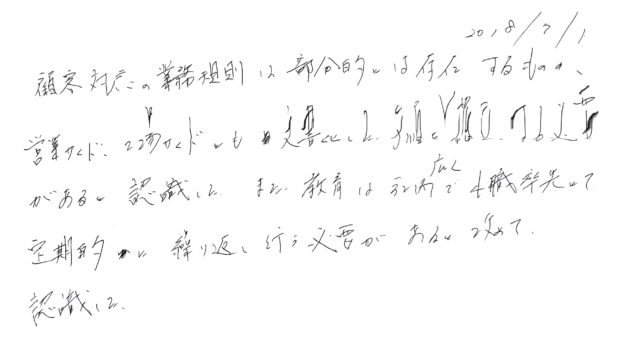 2018/7/1
顧客対応の業務規則は部分的には存在するものの、
営業サイド、工場サイドにも 文書化した 手順を 確立 する必要
があると認識した。また、教育は社内で広く 職率先して
定期的に繰り返し行う必要があると改めて
認識した。